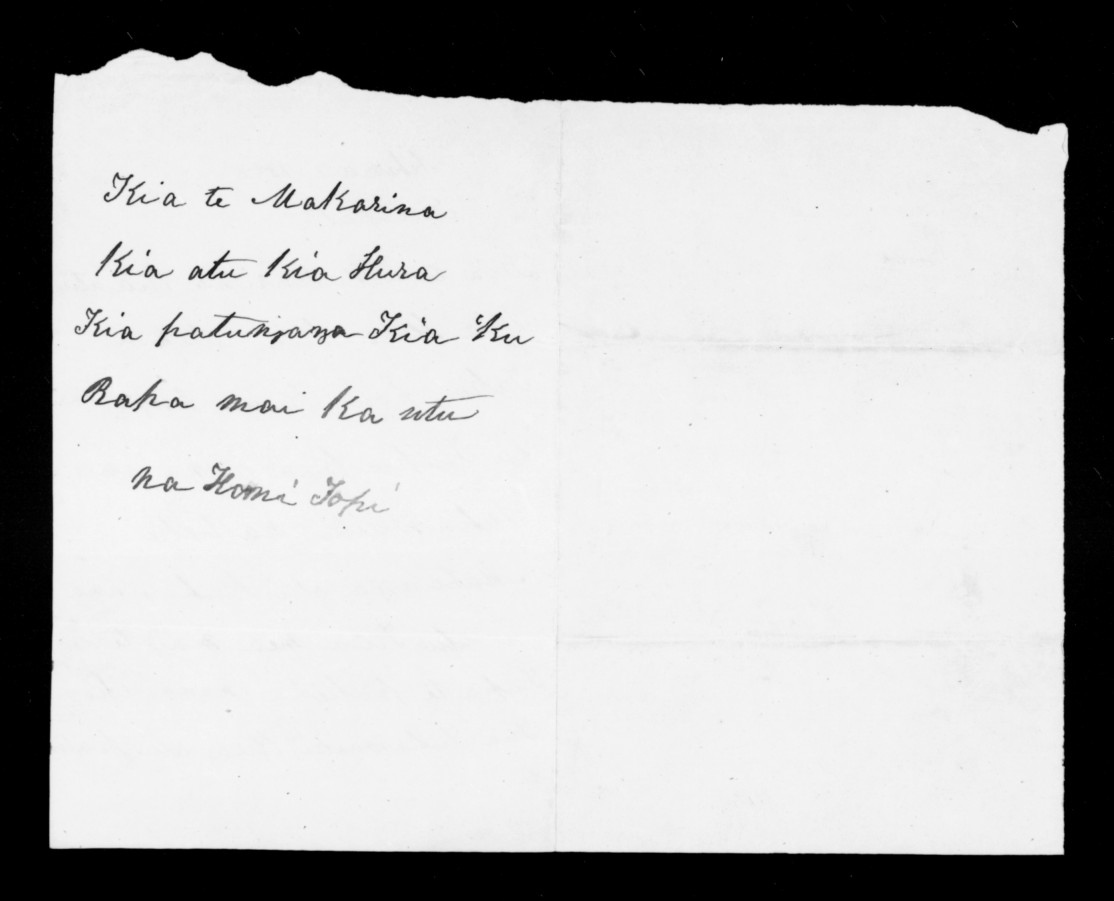 Kia te Makarina
Kia atu Kia Hura
Kia patungana Kia Ku
Raka mai Ka utu
na Homi Topi